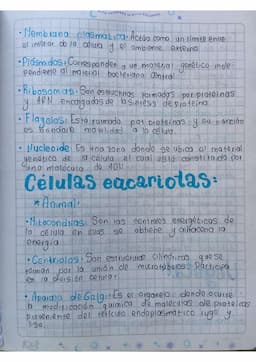 • Membrana plasmatica: Actúa como un límite entre
el interior de la célula y el ambiente externo
• Plásmidos: Corresponden a un material genético inde-
pendiente al material bacteriano central.
• Ribosomas: Son estructuras formadas por proteínas
y ARN encargadas de la síntesis de proteína.
• Flagelos: Esta formado por proteínas y su función
es brindarle movilidad a la célula.
• Nucleoide: Es una zona donde se ubica el material
genético de la célula el cual está constituido por
una molécula de ADN.
Células eucariotas:
* Animal:
• Mitocondrias: Son las centrales energéticas de
la célula en ellas se obtiene y almacena la
energía
• Centriolos: Son estructuras cilíndricas que se
forman por la unión de microtúbulos. Participa
en la división celular.
• Aparato de Golgi: Es el organelo donde ocurre
la modificación química de moléculas de proteínas
proveniente del retículo endoplasmático rugo y
liso.